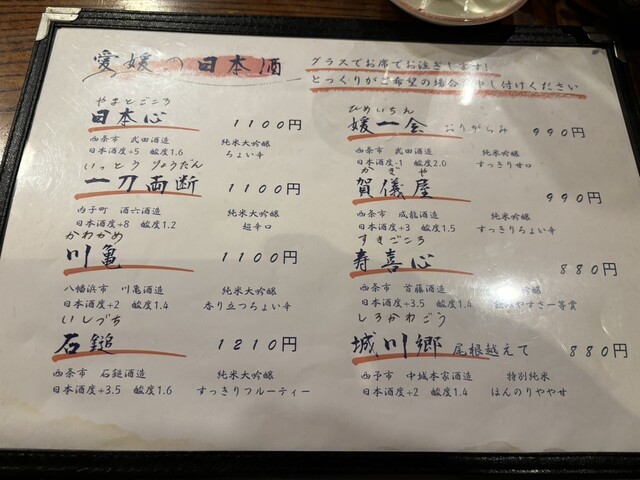 愛媛の日本酒
グラスでお席でお注ぎします!
とっくりがご希望の場合お申し付けください
やまとごころ
日本心 1100円
西条市 武田酒造 純米大吟醸
日本酒度+5 酸度1.6 ちょい辛
いっとうりょうだん
一刀両断 1100円
内子町 酒六酒造 純米大吟醸
日本酒度+8 酸度1.2 超辛口
かわかめ
川亀 1100円
八幡浜市 川亀酒造 純米大吟醸
日本酒度+2 酸度1.4 香り立つちょい辛
いしづち
石鎚 1210円
西条市 石鎚酒造 純米大吟醸
日本酒度+3.5 酸度1.6 すっきりフルーティー
ひめいちえ
媛一会 おりがらみ 990円
西条市 武田酒造 純米吟醸
日本酒度-1 酸度2.0 すっきり甘口
かぎや
賀儀屋 990円
西条市 成龍酒造 純米吟醸
日本酒度+3 酸度1.5 すっきりちょい辛
すきごころ
寿喜心 880円
西条市 首藤酒造 純米吟醸
日本酒度+3.5 酸度1.4 飲みやすさ一等賞
しろかわごう
城川郷 尾根越えて 880円
西予市 中城本家酒造 特別純米
日本酒度+2 酸度1.4 ほんのりやや甘